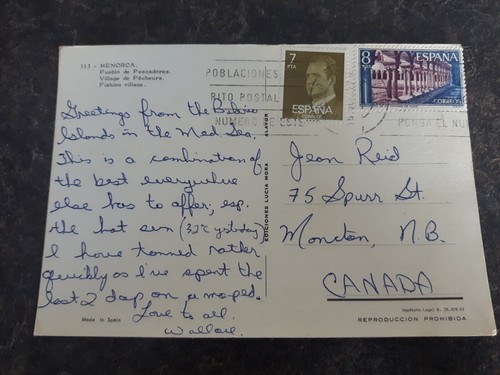 353 - MENORCA.
Pueblo de Pescadores.
Village de Pêcheurs.
Fishing village.
Greetings from the Balearic
Islands in the Med Sea.
This is a combination of
the best everywhere
else has to offer, esp.
the hot sun (32°C yesterday)
I have tanned rather
quickly as I've spent the
last 2 days on a moped.
Love to all.
Wallace.
Made in Spain
EDICIONES LUCIA MORA
POBLACIONES
POSTAL
NUMERO
ESTE
7
PTA
ESPAÑA
8
ESPAÑA
CORREOS
PONGA EL
Jean Reid
75 Spurr St.
Moncton, N.B.
CANADA
REPRODUCCION PROHIBIDA